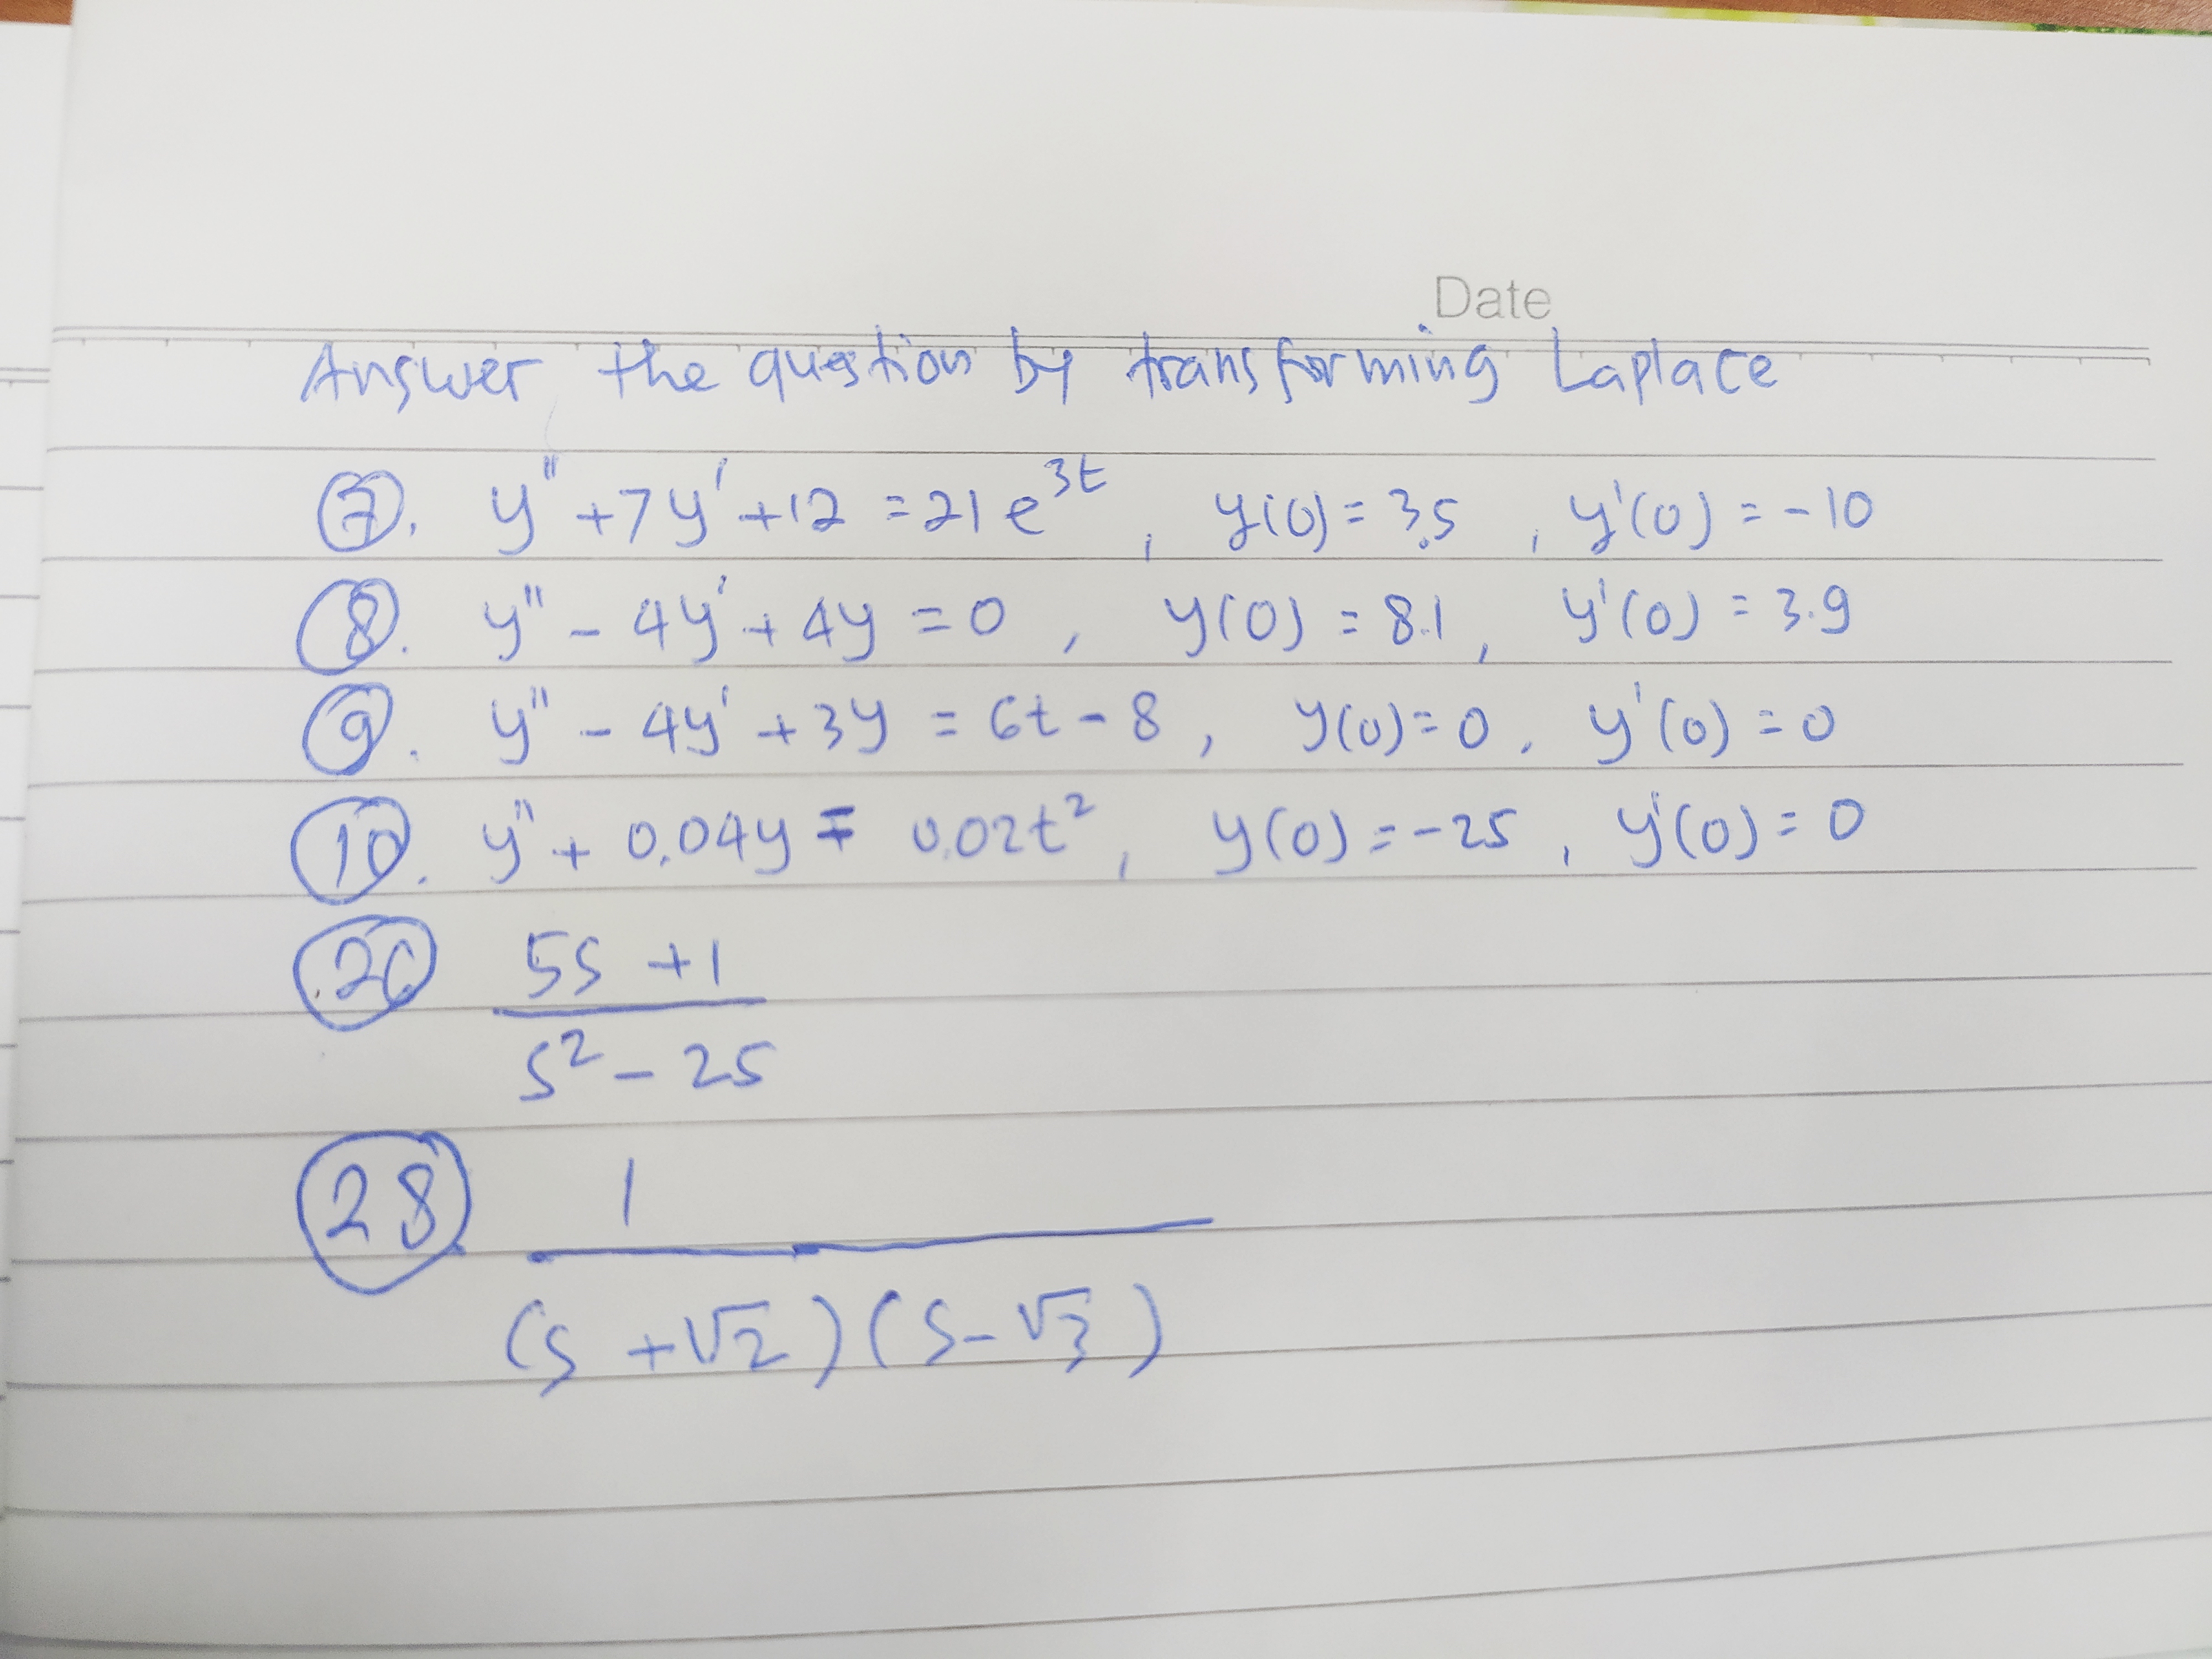 Date
Answer the question by transforming Laplace
7. y'' + 7y' + 12 = 21 e^3t, y(0) = 3.5, y'(0) = -10
8. y'' - 4y' + 4y = 0, y(0) = 8.1, y'(0) = 3.9
9. y'' - 4y' + 3y = 6t - 8, y(0) = 0, y'(0) = 0
10. y'' + 0.04y = 0.02t², y(0) = -25, y'(0) = 0
26 5s + 1
s² - 25
28. 1
(s + √2)(s - √3)